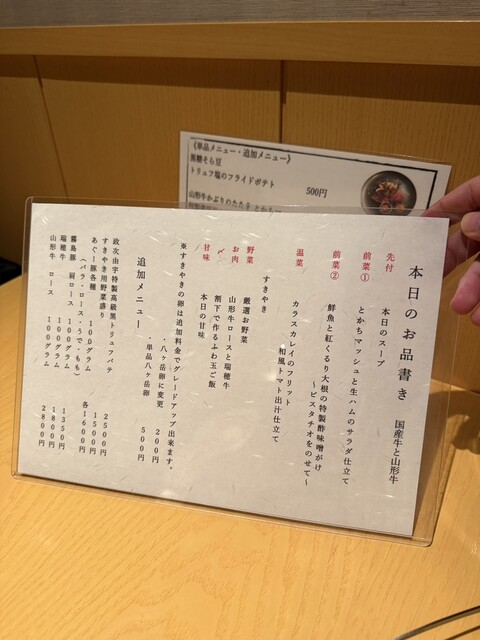 本日のお品書き 国産牛と山形牛
先付
本日のスープ
前菜①
とかちマッシュと生ハムのサラダ仕立て
前菜②
鮮魚と紅くるり大根の特製酢味噌がけ
～ピスタチオをのせて～
温菜
カラスカレイのフリット
和風トマト出汁仕立て
すきやき
野菜 厳選お野菜
お肉 山形牛ロースと瑞穂牛
〆 割下で作るふわ玉ご飯
甘味 本日の甘味
※すきやきの卵は追加料金でグレードアップ出来ます。
・八ヶ岳卵に変更 200円
・単品八ヶ岳卵 500円
追加メニュー
政次由宇特製高級黒トリュフパテ 2500円
すきやき用野菜盛り 1500円
あぐー豚各種 100グラム 各1600円
(バラ・ロース・うで・もも)
霧島豚 肩ロース 100グラム 1350円
瑞穂牛 100グラム 1850円
山形牛 ロース 100グラム 2800円
《単品メニュー・追加メニュー》
黒糖そら豆
トリュフ塩のフライドポテト 500円
山形牛かぶりのたたき